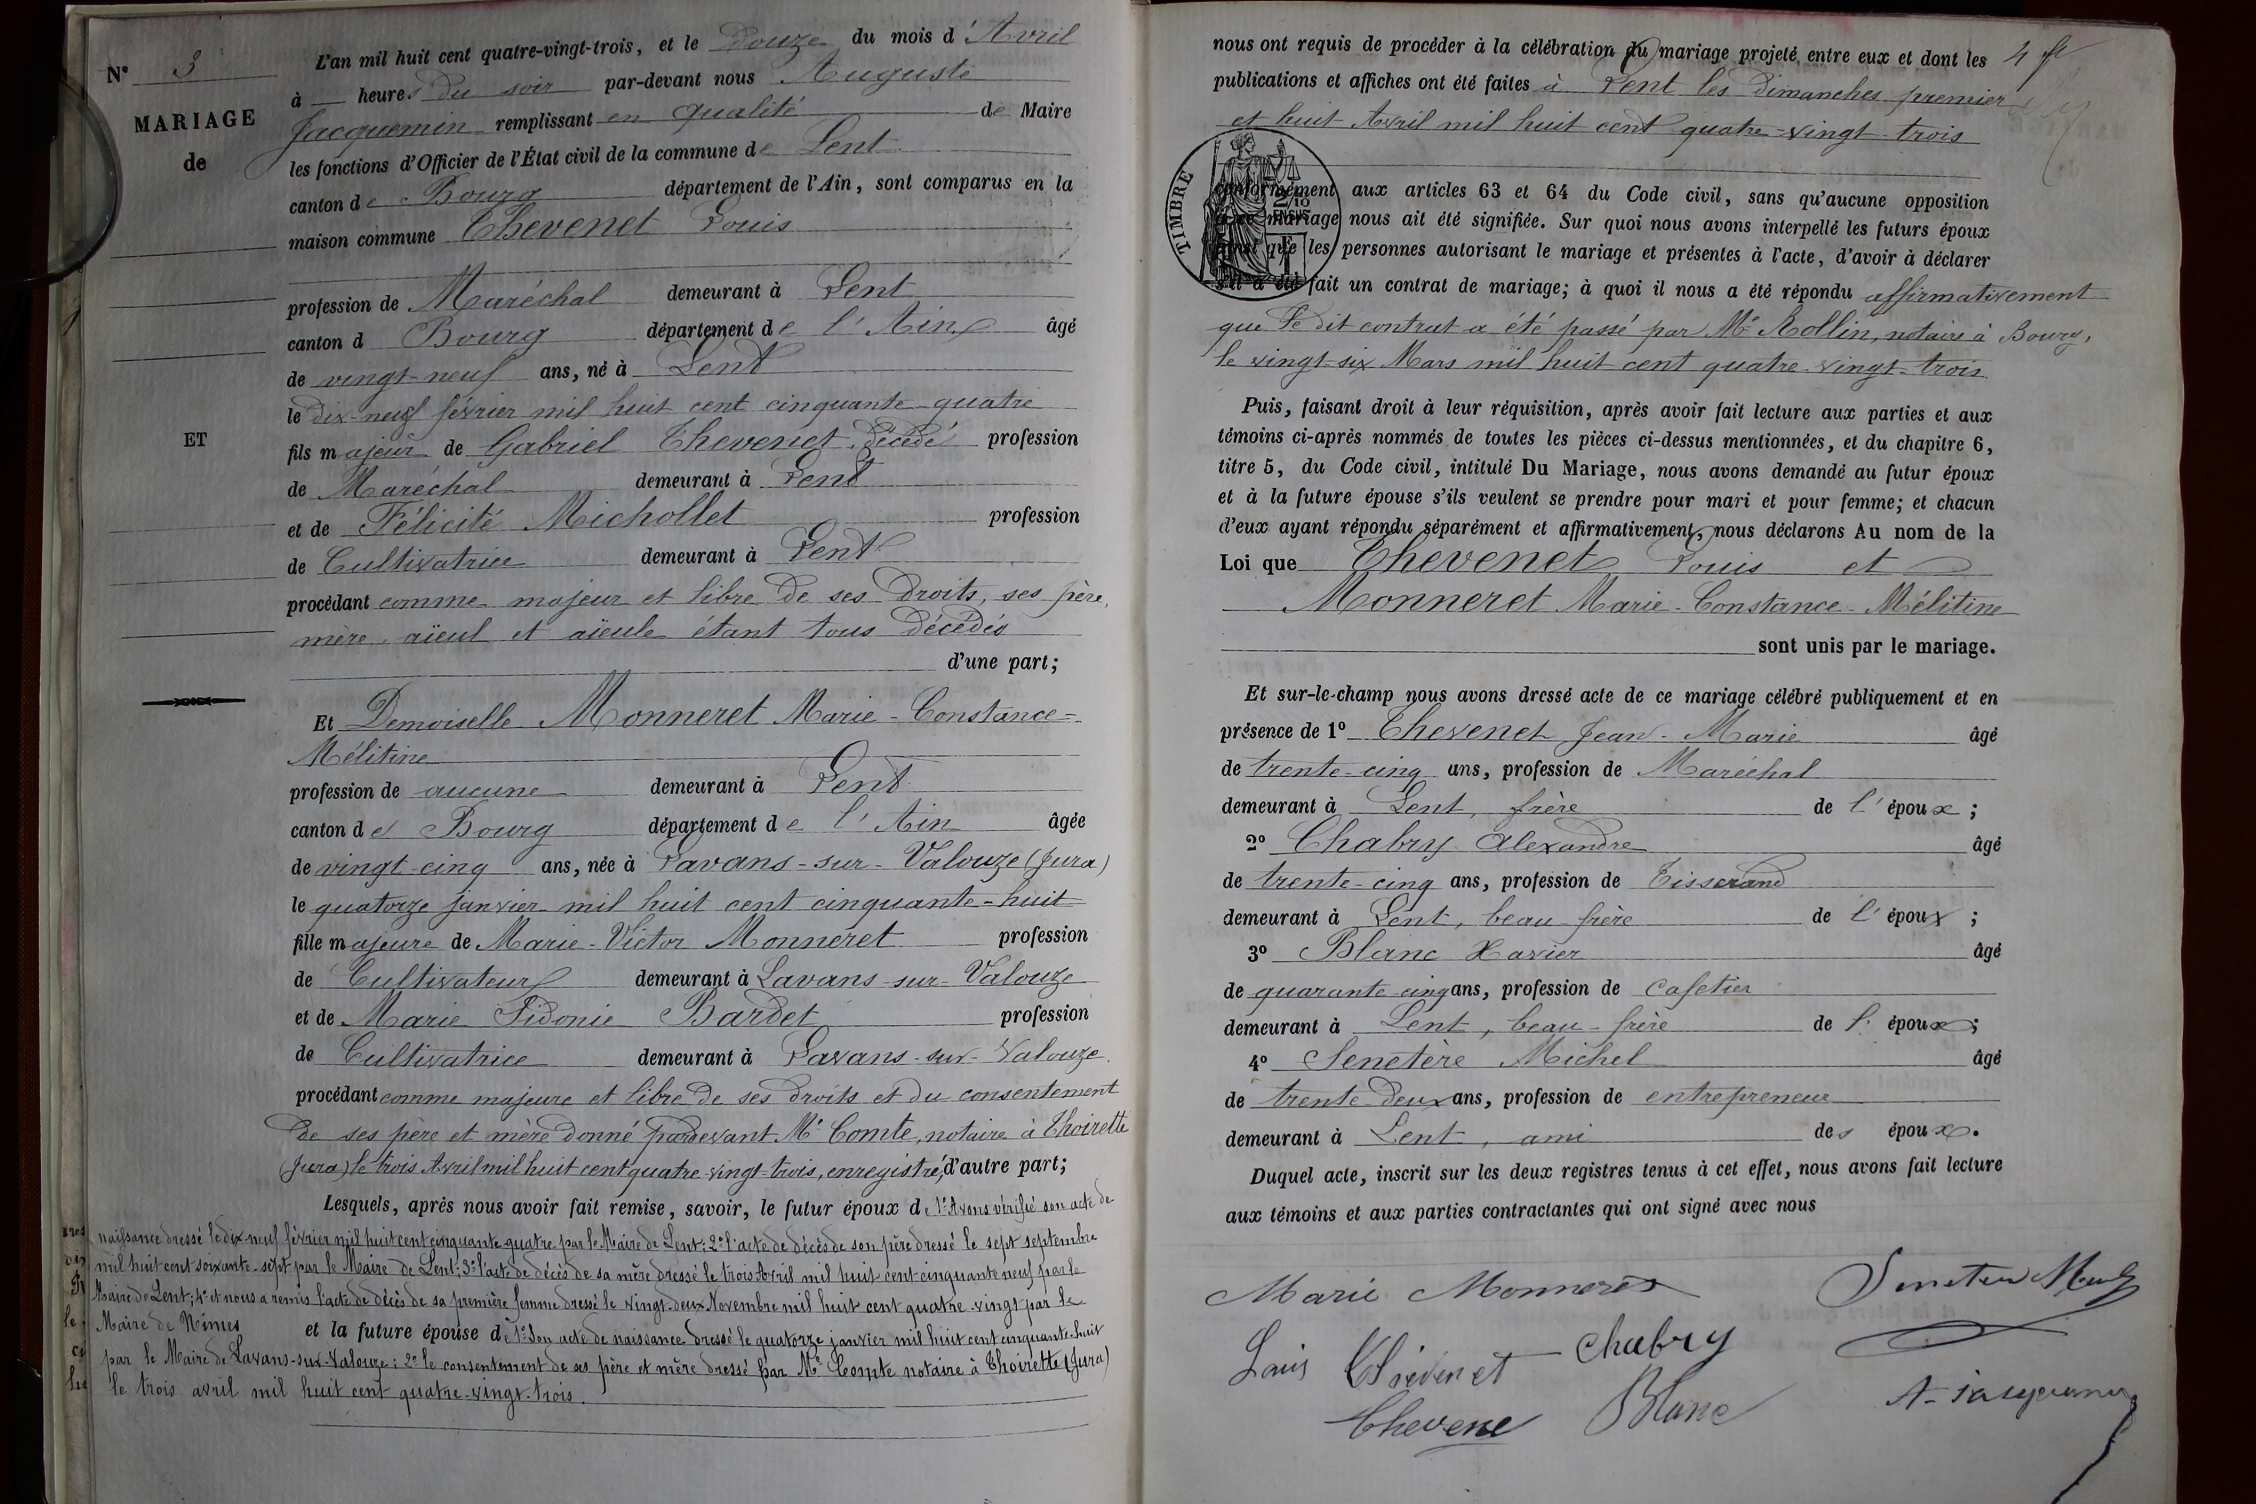 N° 3
MARIAGE
de
ET
L'an mil huit cent quatre-vingt-trois, et le douze du mois d'Avril
à — heures du soir par-devant nous Auguste
Jacquemin remplissant en qualité de Maire
les fonctions d'Officier de l'État civil de la commune de Lent
canton de Bourg département de l'Ain, sont comparus en la
maison commune Thevenet Louis
profession de Maréchal demeurant à Lent
canton d Bourg département de l'Ain âgé
de vingt-neuf ans, né à Lent
le dix-neuf février mil huit cent cinquante-quatre
fils majeur de Gabriel Thevenet, décédé profession
de Maréchal demeurant à Lent
et de Félicité Michollet profession
de Cultivatrice demeurant à Lent
procédant comme majeur et libre de ses droits, ses père,
mère, aïeul et aïeule étant tous décédés
d'une part;
Et Demoiselle Monneret Marie-Constance-
Mélitine
profession de aucune demeurant à Lent
canton de Bourg département de l'Ain âgée
de vingt-cinq ans, née à Lavans-sur-Valouze (Jura)
le quatorze janvier mil huit cent cinquante-huit
fille majeure de Marie-Victor Monneret profession
de Cultivateur demeurant à Lavans-sur-Valouze
et de Marie Sidonie Bardet profession
de Cultivatrice demeurant à Lavans-sur-Valouze.
procédant comme majeure et libre de ses droits et du consentement
de ses père et mère donné pardevant Me Comte, notaire à Thoirette
(Jura) le trois Avril mil huit cent quatre-vingt-trois, enregistré, d'autre part;
Lesquels, après nous avoir fait remise, savoir, le futur époux de 1° Avons vérifié son acte de
naissance dressé le dix-neuf février mil huit cent cinquante quatre par le Maire de Lent; 2° l'acte de décès de son père dressé le sept septembre
mil huit cent soixante-sept par le Maire de Lent; 3° l'acte de décès de sa mère dressé le trois Avril mil huit cent cinquante neuf par le
Maire de Lent; 4° et nous a remis l'acte de décès de sa première femme dressé le vingt-deux Novembre mil huit cent quatre-vingt par le
Maire de Nîmes et la future épouse de 1° Son acte de naissance dressé le quatorze janvier mil huit cent cinquante-huit
par le Maire de Lavans-sur-Valouze; 2° le consentement de ses père et mère dressé par Me Comte notaire à Thoirette (Jura)
le trois avril mil huit cent quatre-vingt-trois.
nous ont requis de procéder à la célébration du mariage projeté entre eux et dont les
publications et affiches ont été faites à Lent les Dimanches premier
et huit Avril mil huit cent quatre-vingt-trois
TIMBRE
conformément aux articles 63 et 64 du Code civil, sans qu'aucune opposition
à ce mariage nous ait été signifiée. Sur quoi nous avons interpellé les futurs époux
ainsi que les personnes autorisant le mariage et présentes à l'acte, d'avoir à déclarer
s'il a été fait un contrat de mariage; à quoi il nous a été répondu affirmativement
que le dit contrat a été passé par Me Rollin, notaire à Bourg,
le vingt-six Mars mil huit cent quatre-vingt-trois
Puis, faisant droit à leur réquisition, après avoir fait lecture aux parties et aux
témoins ci-après nommés de toutes les pièces ci-dessus mentionnées, et du chapitre 6,
titre 5, du Code civil, intitulé Du Mariage, nous avons demandé au futur époux
et à la future épouse s'ils veulent se prendre pour mari et pour femme; et chacun
d'eux ayant répondu séparément et affirmativement, nous déclarons Au nom de la
Loi que Thevenet Louis et
Monneret Marie-Constance-Mélitine
sont unis par le mariage.
Et sur-le-champ nous avons dressé acte de ce mariage célébré publiquement et en
présence de 1° Thevenet Jean-Marie âgé
de trente-cinq ans, profession de Maréchal
demeurant à Lent, frère de l'époux;
2° Chabry Alexandre âgé
de trente-cinq ans, profession de Tisserand
demeurant à Lent, beau-frère de l'époux;
3° Blanc Xavier âgé
de quarante cinq ans, profession de cafetier
demeurant à Lent, beau-frère de l'époux;
4° Senetère Michel âgé
de trente deux ans, profession de entrepreneur
demeurant à Lent, ami des époux.
Duquel acte, inscrit sur les deux registres tenus à cet effet, nous avons fait lecture
aux témoins et aux parties contractantes qui ont signé avec nous
Marie Monneret
Louis Thevenet Chabry
Thevene Blanc